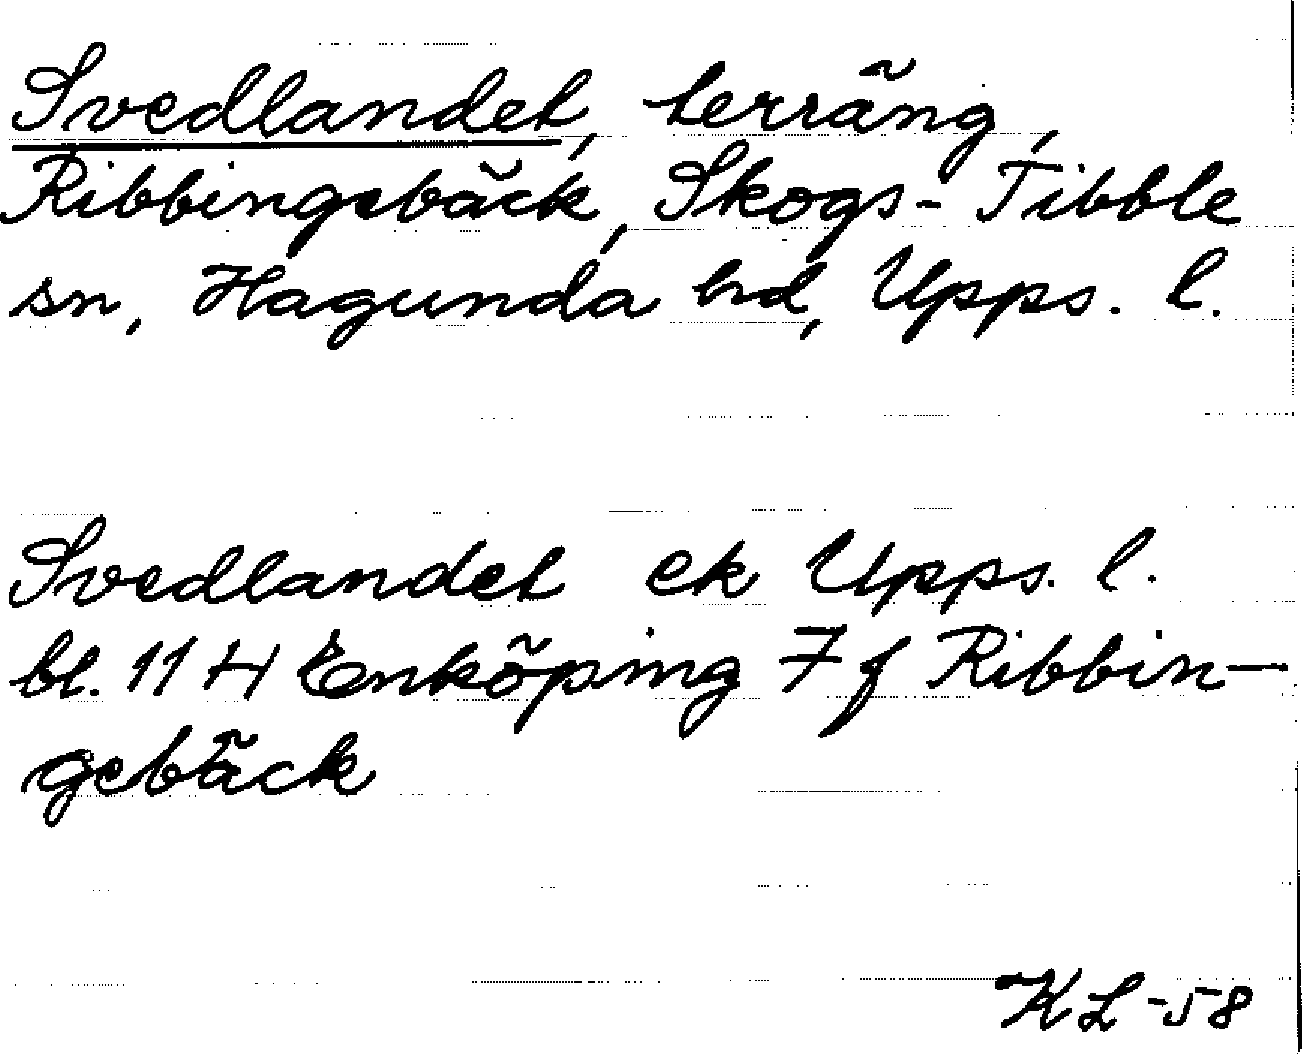 Svedlandet, terräng,
Ribbingebäck, Skogs-Tibble
sn, Hagunda hd, Upps. l.
Svedlandet ek Upps. l.
bl. 11 H Enköping 7 f Ribbin-
gebäck
KL -58